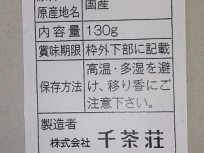 原産地名 国産
内容量 130g
賞味期限 枠外下部に記載
保存方法 高温・多湿を避
け、移り香にご
注意下さい。
製造者
株式会社 千茶荘